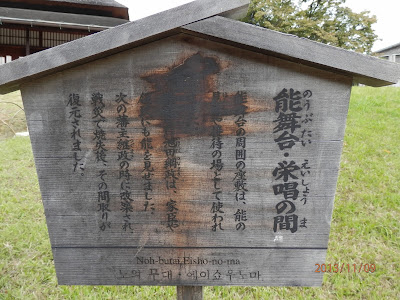 のうぶたい えいしょう ま
能舞台・栄唱の間
能舞台の周囲の座敷は、能の
接待の場として使われ
綱政は、家臣
にも能を見せました。
次の藩主継政の時に改築され
戦災で焼失後、その間取りが
復元されました。
Noh-butai,Eisho-no-ma
노의 무대・에이쇼우노마
2013/11/09